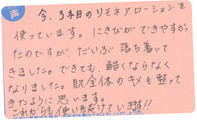 声
今、3本目のリモネアローションを
使っています。にきびができやすかっ
たのですが、だいぶ落ち着いて
きました。できても、酷くならなく
なりました。肌全体のキメも整って
きたように思います。
これからも使い続けています!!